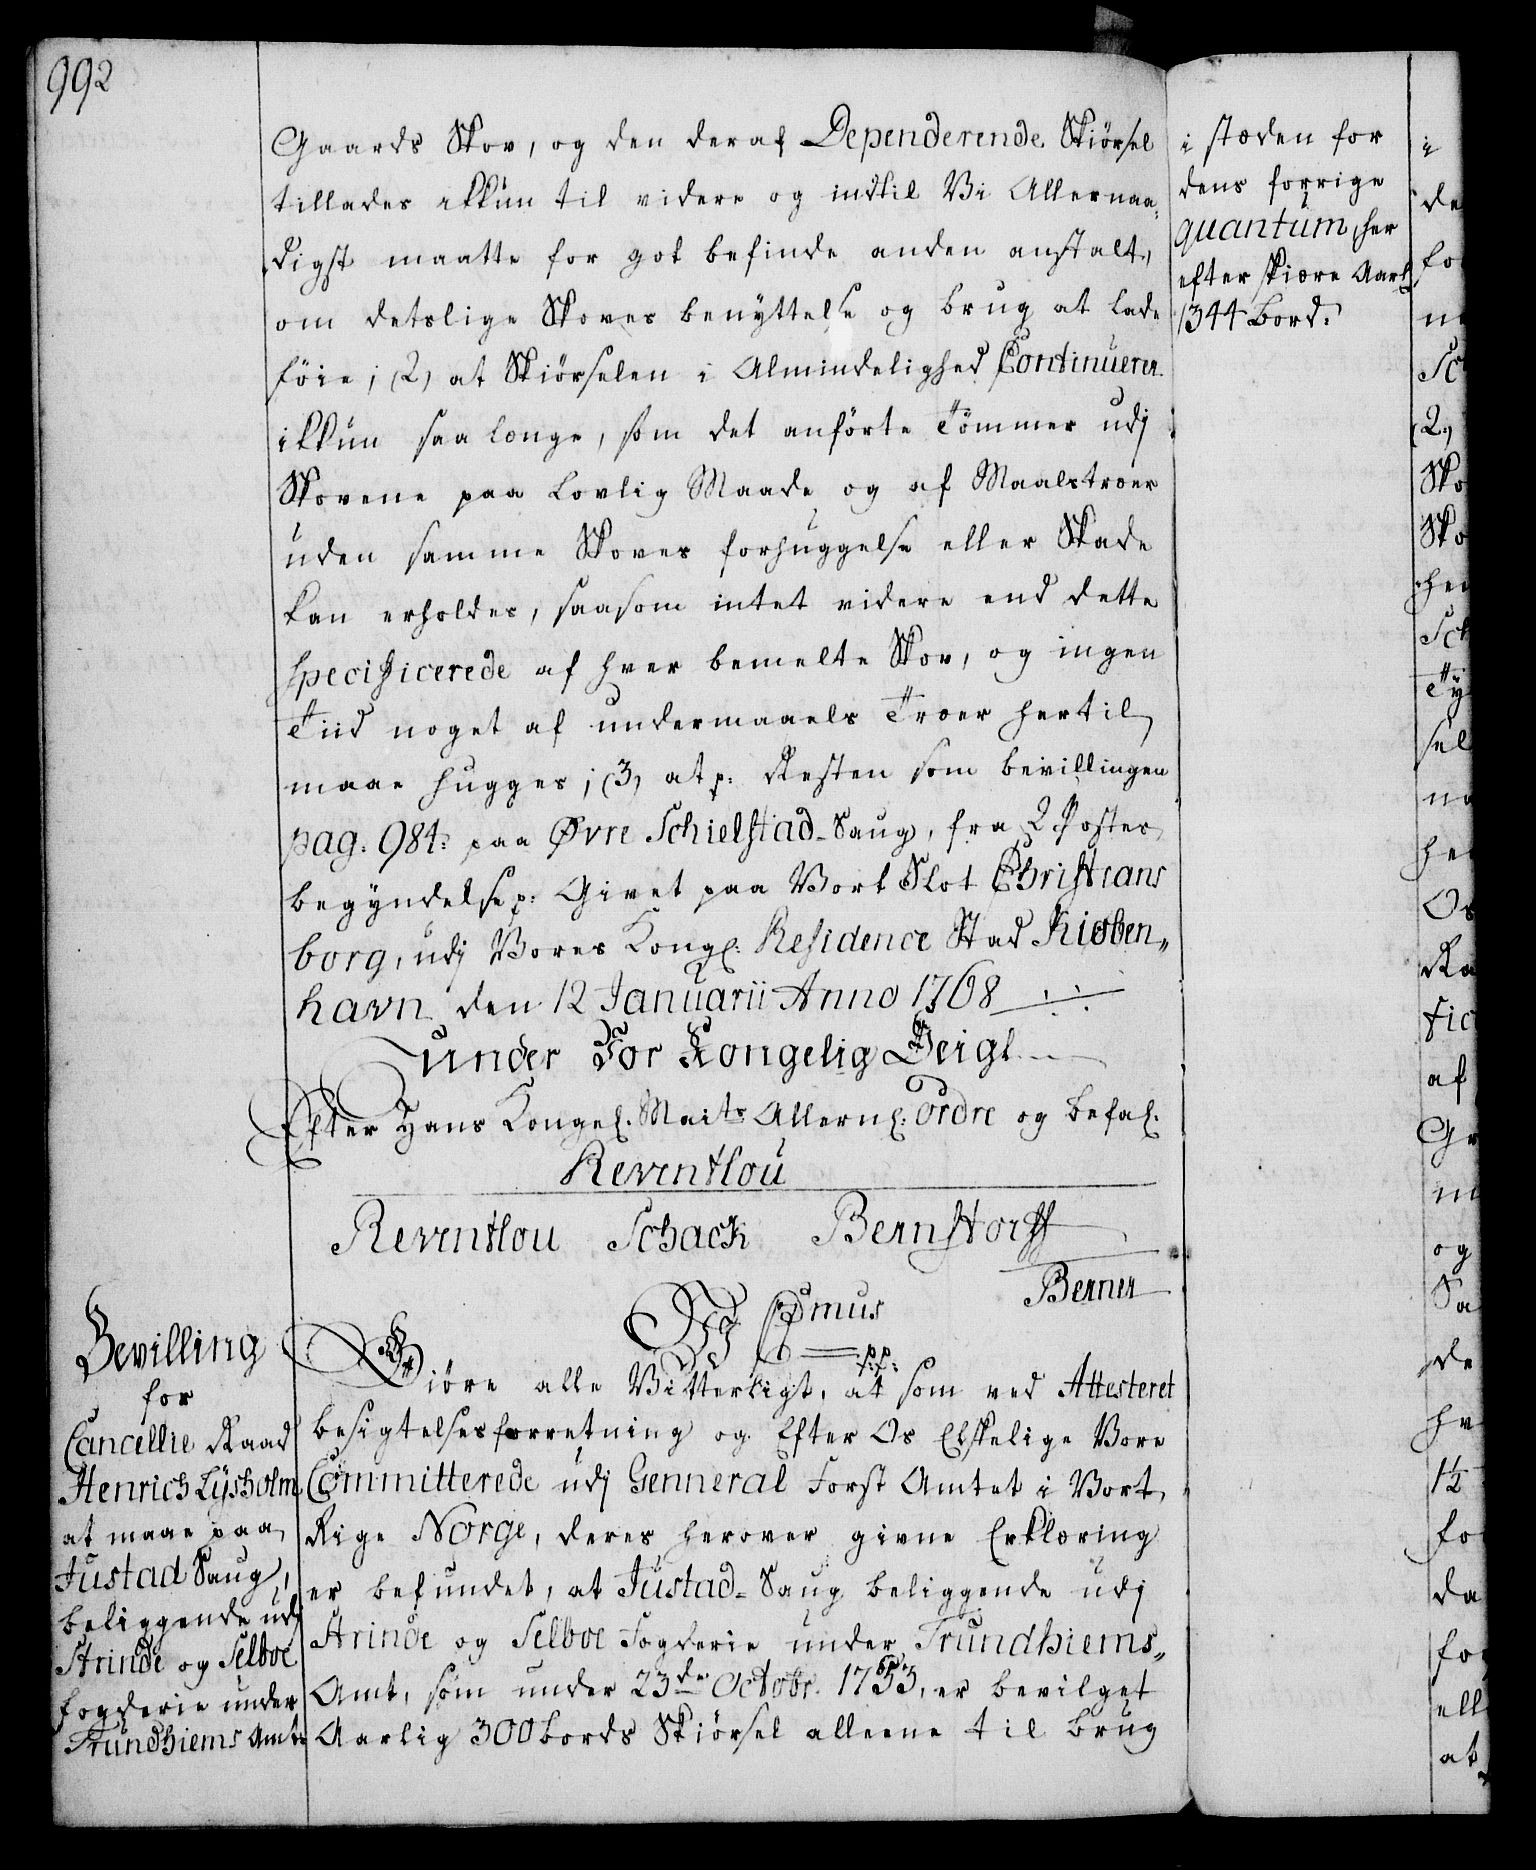 992
Gaards Skov, og den deraf Dependerende Skiörsel
tillades ikkun til videre og indtil Vi Allernaa-
digst maatte for got befinde anden anstalt,
om detslige Skoves benyttelse og brug at lade
föie; (2) at Skiörselen i Almindelighed Continuerer
ikkun saa længe, som det anförte Tömmer udj
Skovene paa lovlig Maade og af Maalstræer
uden samme Skoves forhuggelse eller Skade
kan erholdes, saasom intet videre end dette
specificerede af hver bemelte Skov, og ingen
Tiid noget af undermaaels Træer hertil
maae hugges; (3) at p: Resten som bevillingen
pag: 984: paa Øvre Schielstad-Saug, fra 2 Postes
begyndelse p: Givet paa Vort Slot Christians
borg, udj Vores Kongl: Residence Stad Kiøben,,
havn den 12 Januarii Anno 1768
under Vor Kongelig Zeigl
Efter Hans Kongel. Maits Allernl: ordre og befal.
Reventlou
Reventlou Schack Bernstorff
Berner
i stæden for
dens forrige
quantum, her
efter skiære Aarl
1344 Bord.
Bevilling
for
Cancellie Raad
Henrich Lÿsholm
at maae paa
Justad Saug,
beliggende udj
Strinde og Selboe
fogderie under
Trundhiems Amt
Wj C 7mus
p.p.
Giöre alle Vitterligt, at som ved Attesteret
besigtelsesforretning og Efter Os Elskelige Vore
Committerede udj Genneral Forst Amtet i Vort
Rige Norge, deres herover givne Erklæring
er befundet, at Justad-Saug beliggende udj
Strinde og Selboe Fogderie under Trundhiems,,
Amt, som under 23de Octobr. 1753, er bevilget
Aarlig 300 bords Skiörsel alleene til brug